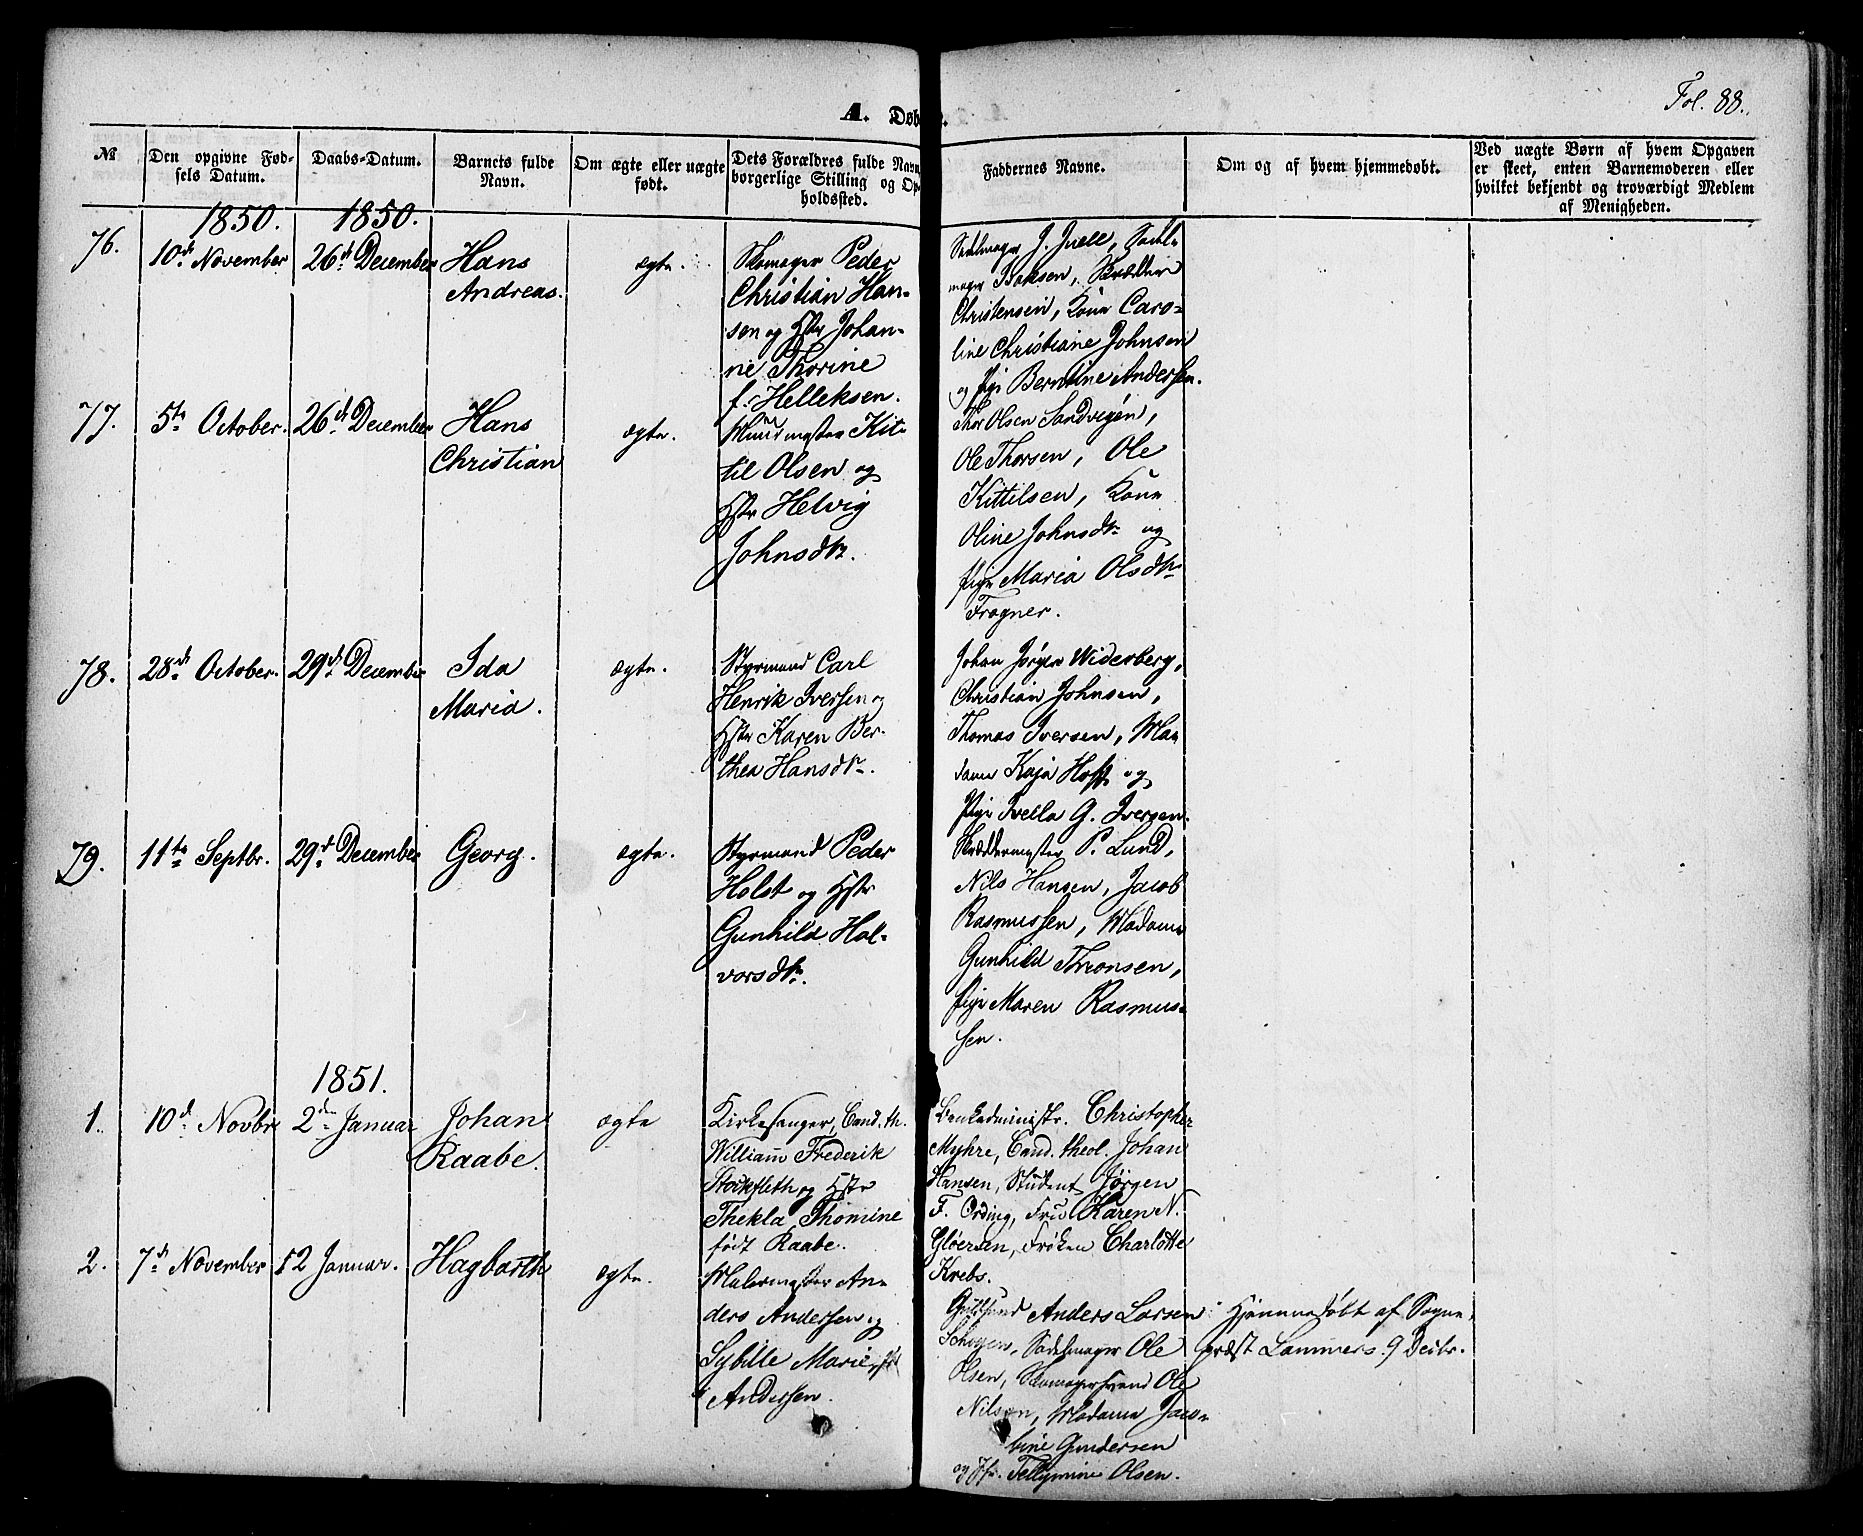 Fol. 88.
A. Døb
№
Den opgivne Fød-
sels Datum.
Daabs-Datum.
Barnets fulde
Navn.
Om ægte eller uægte
født.
Dets Forældres fulde Navn,
borgerlige Stilling og Op-
holdssted.
Faddernes Navne.
Om og af hvem hjemmedøbt.
Ved uægte Børn af hvem Opgaven
er skeet, enten Barnemoderen eller
hvilket bekjendt og troværdigt Medlem
af Menigheden.
1850. 1850.
76.
10de November
26de December
Hans
Andreas.
ægte.
Skomager Peder
Christian Han-
sen og Hstr Johan-
ne Thorine
f. Helleksen.
Sadelmager J. Juell, Sadel-
mager Isaksen, Skrædder
Christensen, Kone Caro-
line Christiane Johnsen
og Pige Berntine Andersen.
77.
5te October.
26de December
Hans
Christian
ægte.
Kit-
til Olsen og
Hstr Helvig
Johnsdtr.
Thor Olsen Sandvigen,
Ole Thorsen, Ole
Kittilsen, Kone
Oline Johnsdtr og
Pige Maria Olsdtr
Frogner.
78.
28de October.
29de December
Ida
Maria.
ægte.
Styrmand Carl
Henrik Iversen og
Hstr Karen Ber-
thea Hansdtr.
Johan Jørgen Widerberg,
Christian Johnsen,
Thomas Iversen, Ma-
dame Kaja Hoff og
Pige G. Iversen.
79.
11te Septbr.
29de December
Georg.
ægte.
Styrmand Peder
Holst og Hstr
Gunhild Hal-
vorsdtr.
Skræddermester P. Lund,
Nils Hansen, Jacob
Rasmussen, Madame
Gunhild Thronsen,
Pige Maren Rasmus-
sen.
1851.
1.
10de Novbr
2den Januar
Johan
Raabe.
ægte
Kirkesanger, Cand. th.
William Frederik
Stockfleth og Hstr
Thekla Thomine
født Raabe.
Bankadministr. Christopher
Myhre, Cand. theol. Johan
Hansen, Student Jørgen
F. Ording, Fru Karen N.
Gløersen, Frøken Charlotte
Krebs.
2.
7de November
12 Januar.
Hagbarth
ægte.
Malermester An-
ders Andersen og
Sybille Marie
Andersen.
Anders Larsen
Sadelmager Ole
Olsen, Skomagersvend Ole
Nilsen, Madame Jaco-
bine Gundersen
og Jfr. Olsen.
Hjemmedøbt af Sogne-
præst Lammers 9 Decbr.